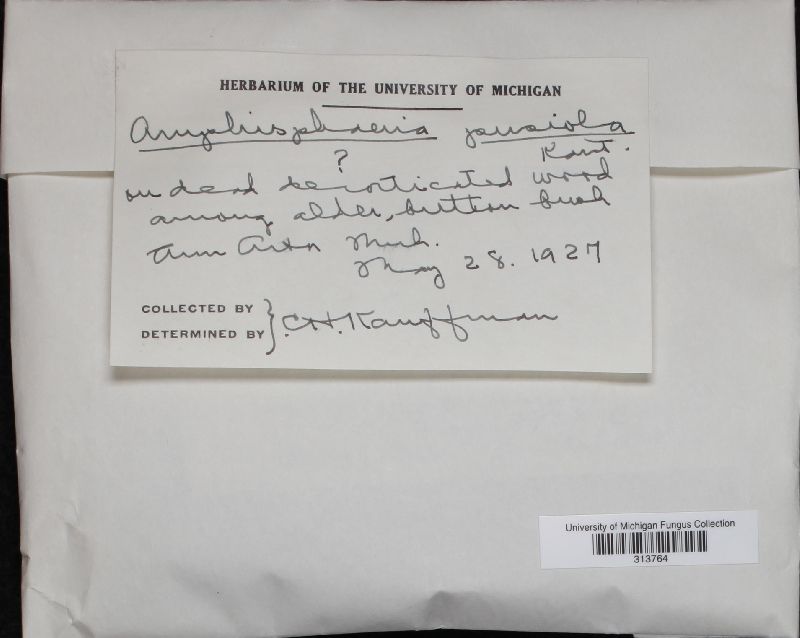 HERBARIUM OF THE UNIVERSITY OF MICHIGAN
Amphisphaeria
?
on dead decorticated wood
among alder, button bush
Ann Arbor Mich.
May 28. 1927
COLLECTED BY
DETERMINED BY } C.H. Kauffman
University of Michigan Fungus Collection
313764